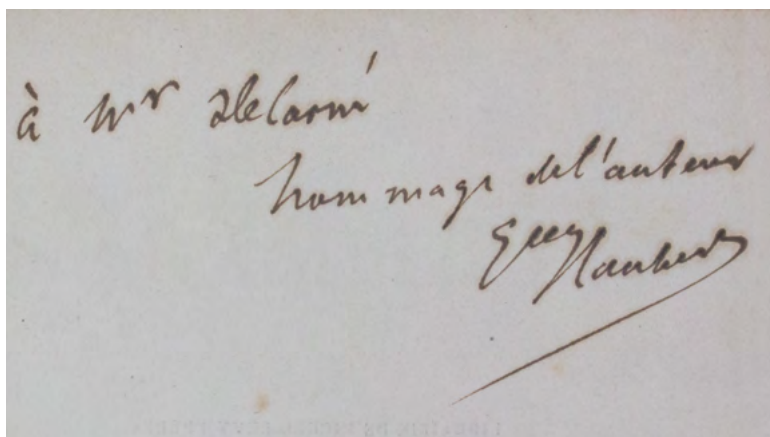 à Mr de Carné
hommage de l'auteur
Gve Flaubert